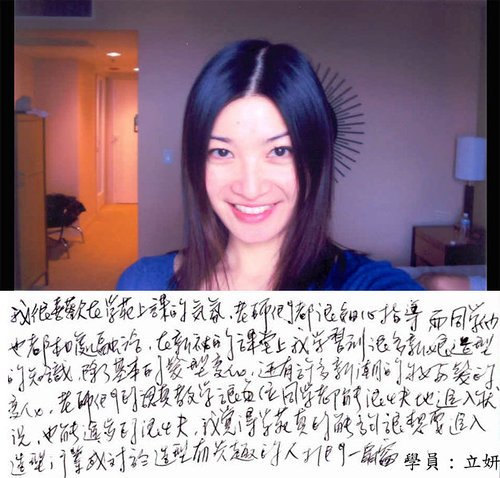 我很喜歡在學苑上課的氣氛,老師們都很細心指導 而同學們
也都相處融洽,在新秘的課堂上我學習到很多新娘造型
的知識,除了基本的髮型變化,還有許多新潮的妝髮的
變化,老師們的認真教學讓每位同學都能很快地進入狀
況,也能進步的很快,我覺得學苑真的能夠讓想要進入
造型行業或對於造型有興趣的人
學員:立妍